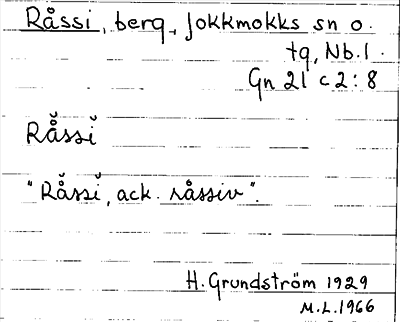 Råssi, berg, Jokkmokks sn o.
tg, Nb.l.
Gn 21 c 2:8
Rå̆ssĭ
"Rå̆ssĭ, ack. råssiv".
H. Grundström 1929
M.L.1966